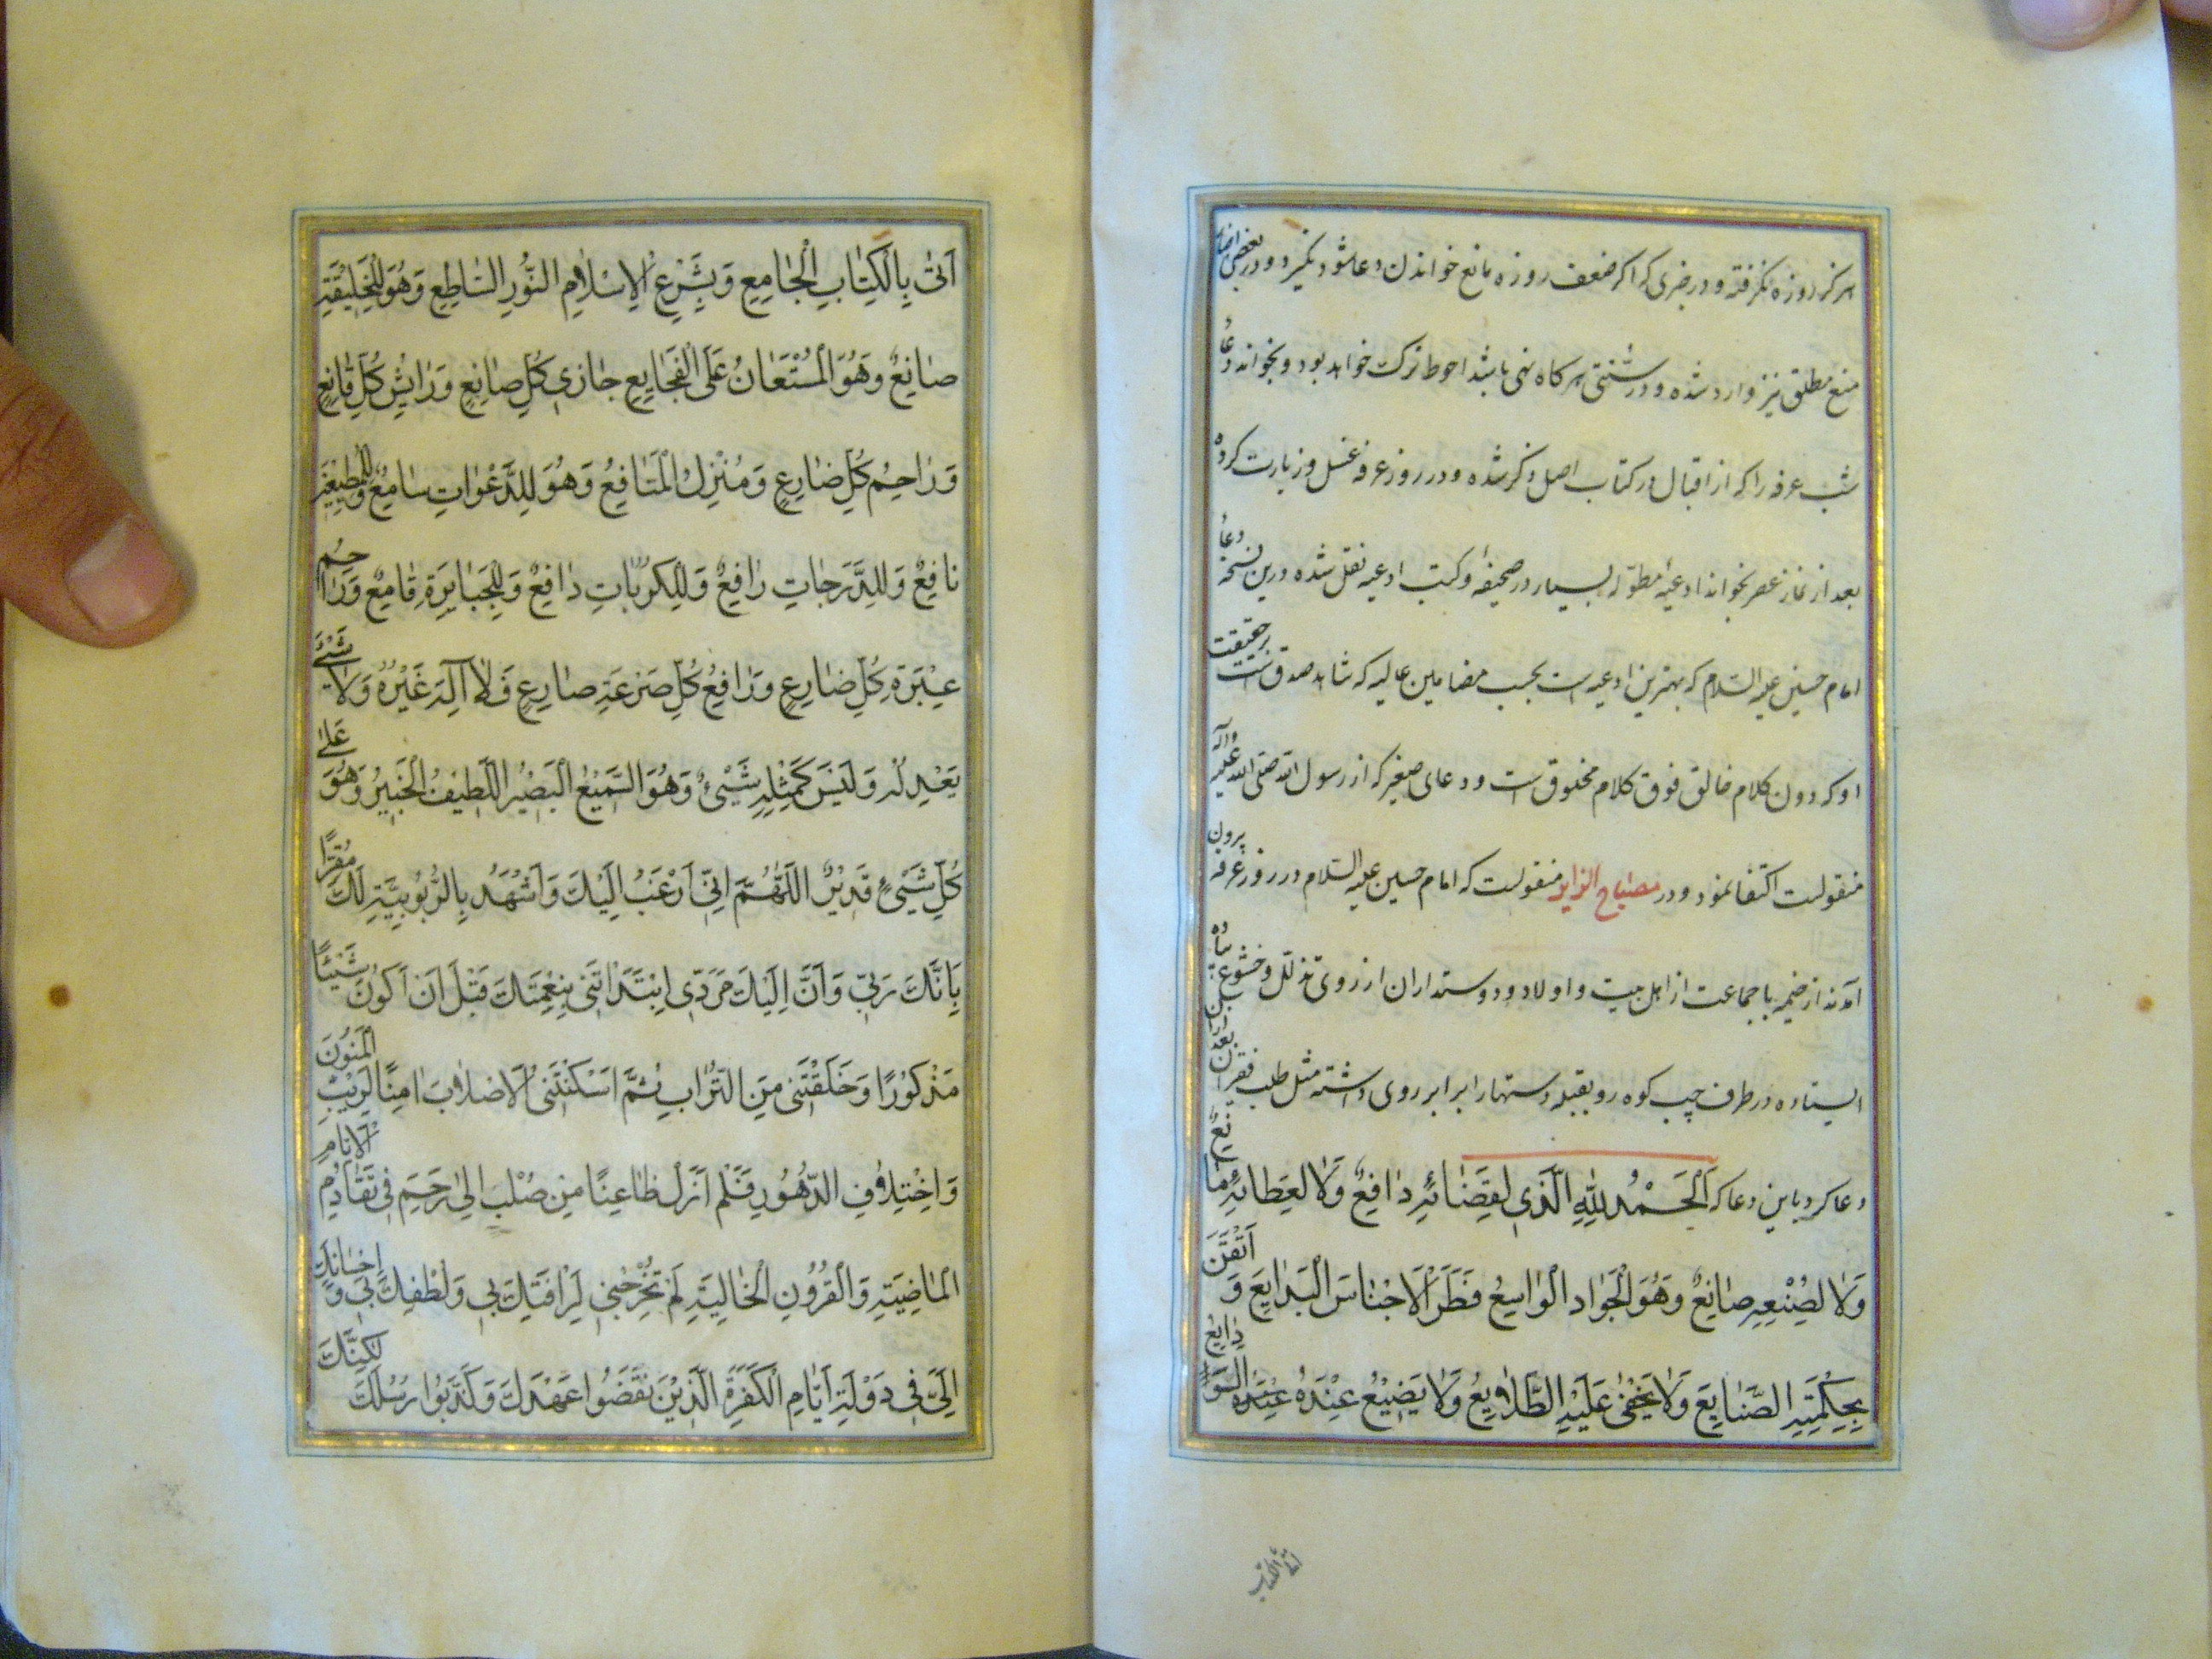 هرکز روزه نکرفته و در خبری که اکر ضعف روزه مانع خواندن دعا شود نکیرد و در بعض اخبار
منع مطلق نیز وارد شده و در سنتی هرکاه نهی باشد احوط ترکست خواهد بود و بخواند دعا
شب عرفه را که از اقبال در کتاب اصل ذکر شده و در روز عرفه غسل و زیارت کرده
بعد از نماز عصر بخواند ادعیهٔ مطوله بسیار در صحیفه و کتب ادعیه نقل شده درین نسخه دعا
امام حسین علیه السلام که بهترین ادعیه است بحسب مضامین عالیه که شاهد صدق است بر حقیقت
او که دون کلام خالق فوق کلام مخلوق است و دعای صغیر که از رسول الله صلی الله علیه وآله
منقولست اکتفا نمود و در مصباح الزایر منقولست که امام حسین علیه السلام در روز عرفه بیرون
آمدند از خیمه با جماعت از اهل بیت و اولاد و دوستداران از روی تذلل و خشوع
ایستاده در طرف چپ کوه رو بقبله دستها را برابر روی داشته مثل طلب فقیران بعد از آن
دعا کرد باین دعا که اَلْحَمْدُ لِلّٰهِ الَّذی لَیْسَ لِقَضٰائِهِ دٰافِعٌ وَلٰا لِعَطٰائِهِ مٰانِعٌ
وَلٰا لِصُنْعِهِ صٰانِعٌ وَهُوَ الْجَوٰادُ الْوٰاسِعُ فَطَرَ الْاَجْنٰاسَ الْبَدٰایِعَ وَ اَتْقَنَ
بِحِکْمَتِهِ الصَّنٰایِعَ وَلٰا یَخْفٰی عَلَیْهِ الطَّلٰایِعُ وَلٰا یَضیْعُ عِنْدَهُ الْوَدٰایِعُ
اَتٰی بِالْکِتٰابِ الْجٰامِعِ وَبِشَرْعِ الْاِسْلٰامِ النُّورِ السّٰاطِعِ وَهُوَ لِلْخَلیْقَةِ
صٰانِعٌ وَهُوَ الْمُسْتَعٰانُ عَلَی الْفَجٰایِعِ جٰازی کُلِّ صٰانِعٍ وَرٰایِشُ کُلِّ قٰانِعٍ
وَرٰاحِمُ کُلِّ ضٰارِعٍ وَمُنْزِلُ الْمَنٰافِعِ وَهُوَ لِلدَّعْوٰاتِ سٰامِعٌ وَلِلْمُطیعیْنَ
نٰافِعٌ وَلِلدَّرَجٰاتِ رٰافِعٌ وَلِلْکُرُبٰاتِ دٰافِعٌ وَلِلْجَبٰابِرَةِ قٰامِعٌ وَرٰاحِمُ
عَبْرَةِ کُلِّ ضٰارِعٍ وَرٰافِعُ کُلِّ صَرْعَةِ صٰارِعٍ فَلٰا اِلٰهَ غَیْرُهُ وَلٰا شَیْئَ
یَعْدِلُهُ وَلَیْسَ کَمِثْلِهِ شَیْئٌ وَهُوَ السَّمیْعُ الْبَصیْرُ اللَّطیفُ الْخَبیْرُ وَهُوَ عَلیٰ
کُلِّ شَیْئٍ قَدیْرٌ اَللّٰهُمَّ اِنّی اَرْغَبُ اِلَیْکَ وَاَشْهَدُ بِالرُّبُوبِیَّةِ لَکَ مُقِرًّا
بِاَنَّکَ رَبّی وَاَنَّ اِلَیْکَ مَرَدّی اِبْتَدَاْتَنی بِنِعْمَتِکَ قَبْلَ اَنْ اَکُونَ شَیْئًا
مَذْکُورًا وَخَلَقْتَنی مِنَ التُّرٰابِ ثُمَّ اَسْکَنْتَنی الْاَصْلٰابَ اٰمِنًا لِرَیْبِ الْمَنُونَ
وَاخْتِلٰافِ الدُّهُورِ فَلَمْ اَزَلْ ظٰاعِنًا مِنْ صُلْبٍ اِلیٰ رَحِمٍ فی تَقٰادُمِ الْاَیّٰامِ
الْمٰاضِیَةِ وَالْقُرُونِ الْخٰالِیَةِ لَمْ تُخْرِجْنی لِرَافَتِکَ بی وَلُطْفِکَ بی وَ اِحْسٰانِکَ
اِلَیَّ فی دَوْلَةِ اَیّٰامِ الْکَفَرَةِ الَّذیْنَ نَقَضُوا عَهْدَکَ وَکَذَّبُوا رُسُلَکَ لٰکِنَّکَ